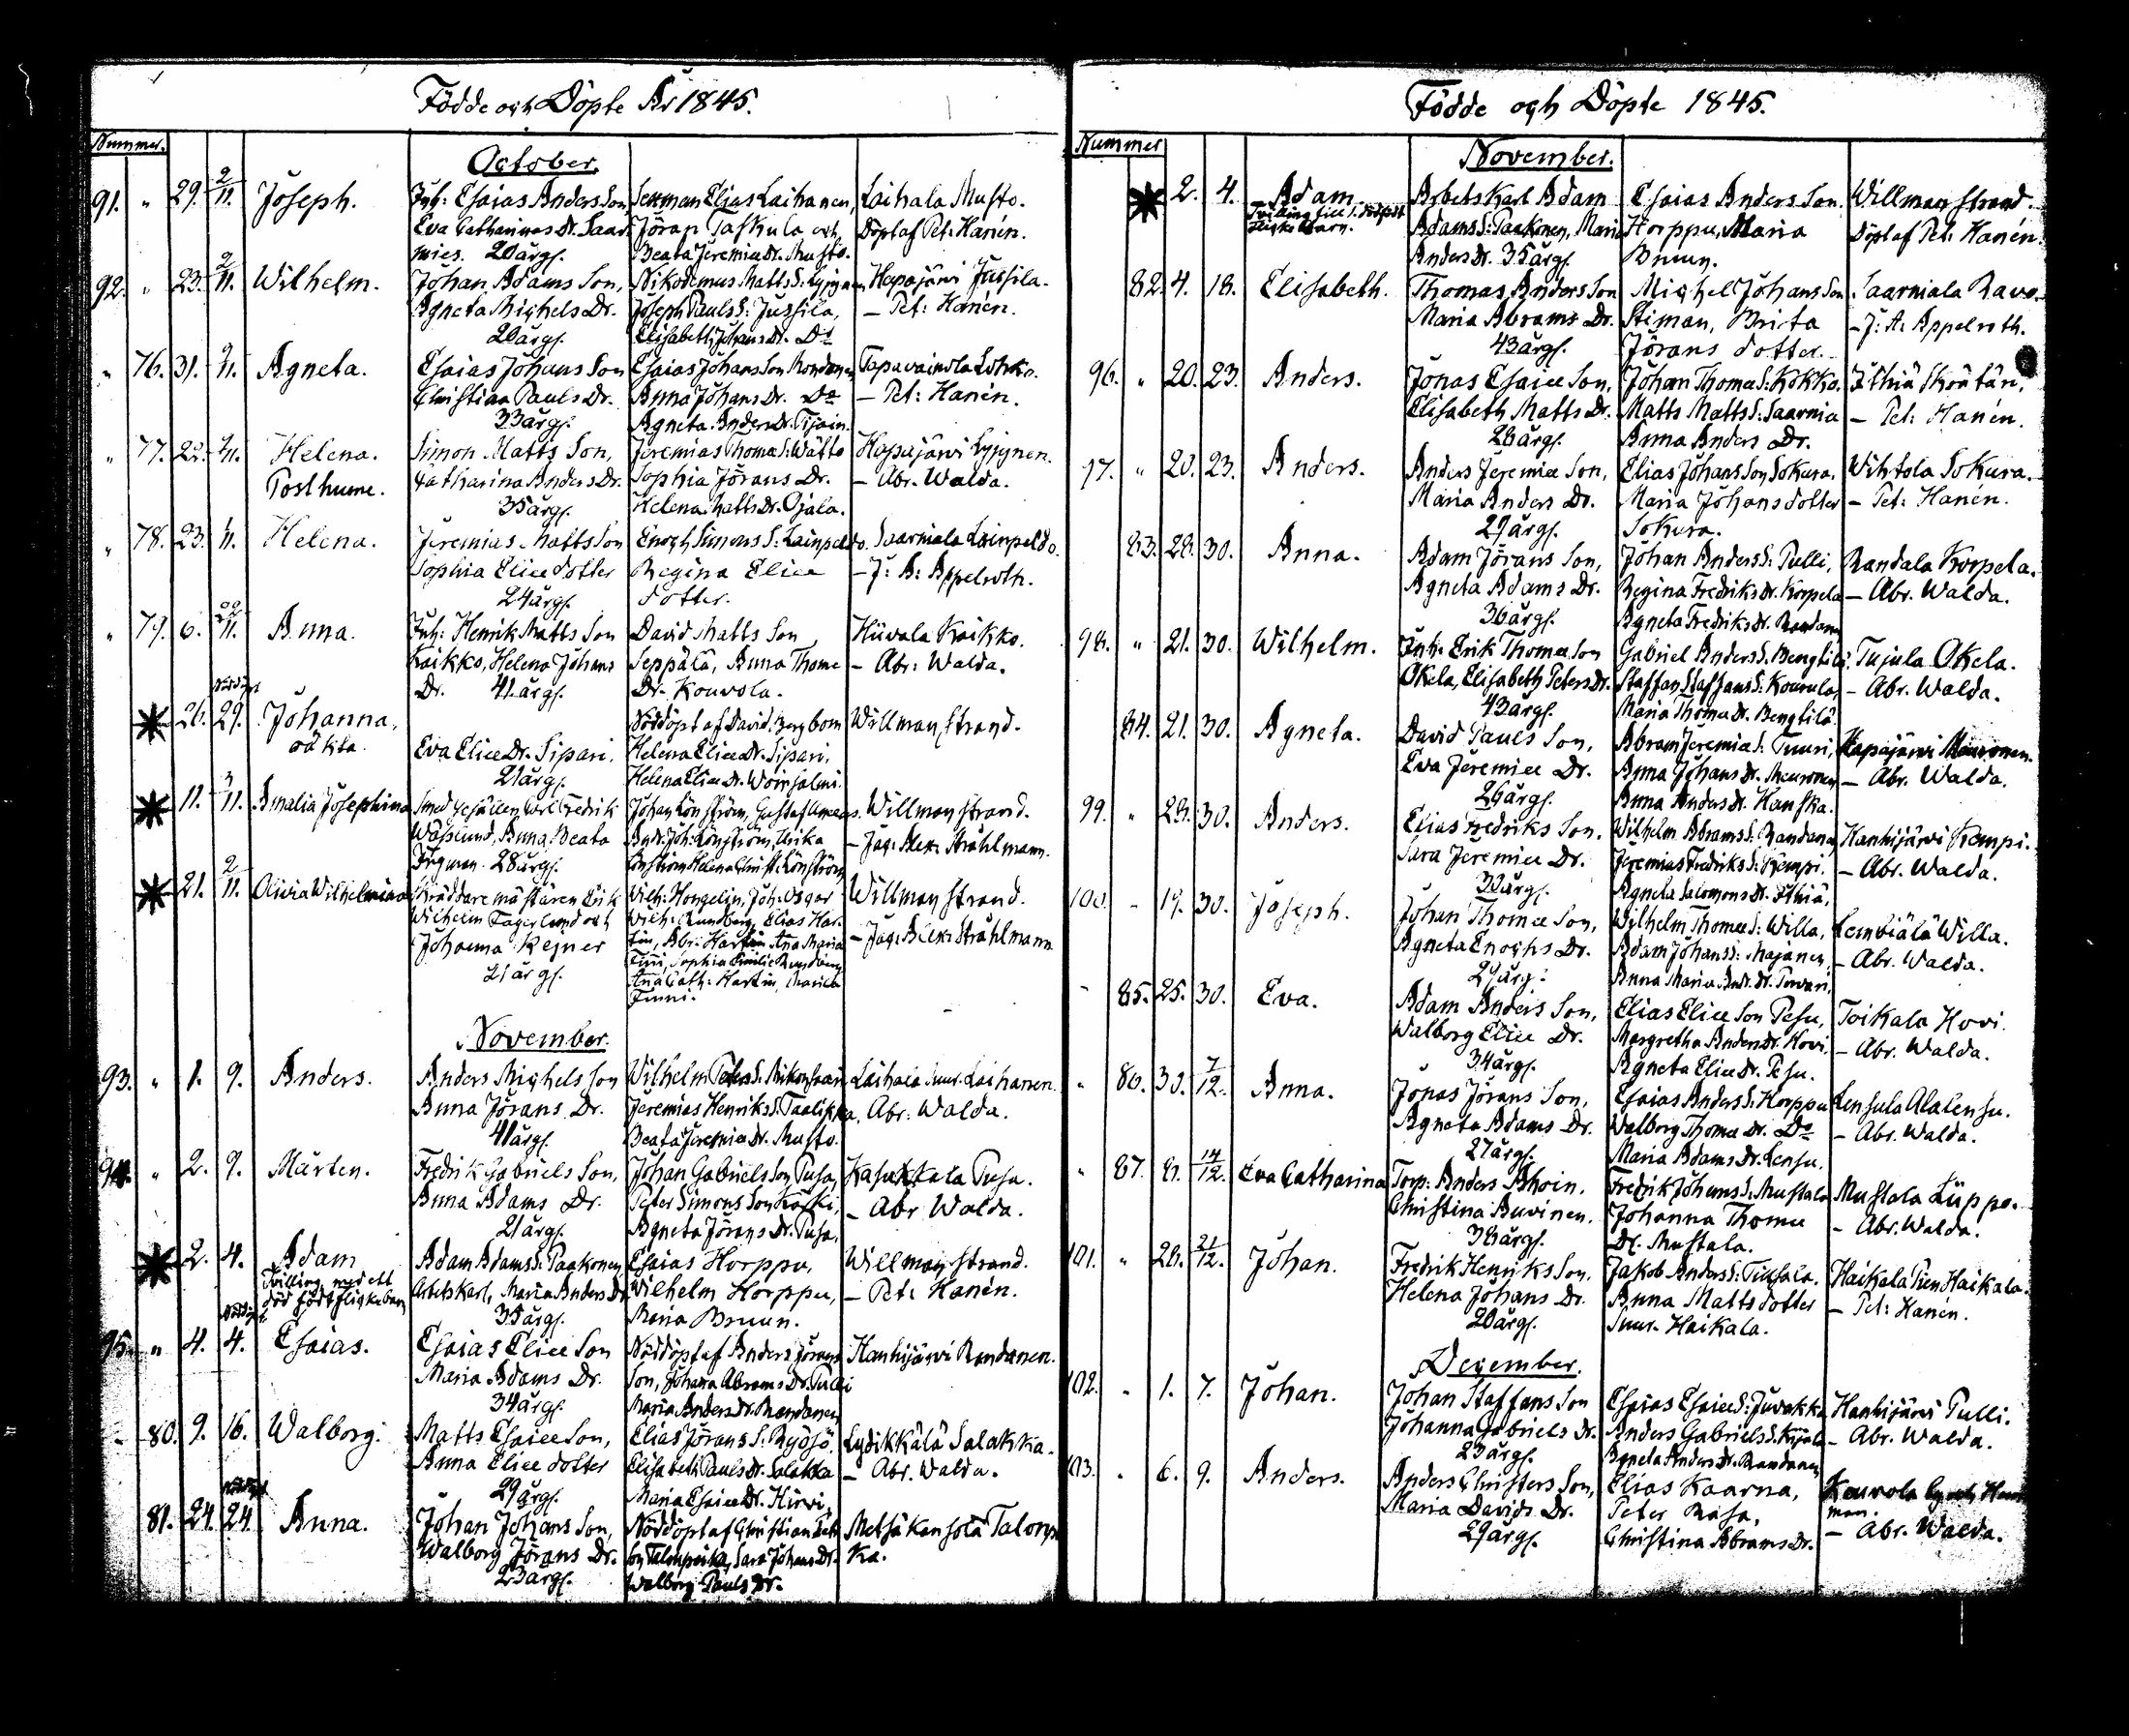 Födde och Döpte År 1845.
Nummer.
October.
91. " 29. 2/11. Joseph. Inh: Esaias Anders Son, Sexman Elias Laihanen, Laihala Musto.
Eva Catharina Dr. Saar- Jöran Taskula och Döpt af Pet: Hanén.
mies. 20 årg. Beata Jeremiæ Dr. Musto.
92. " 23. 2/11. Wilhelm. Johan Adams Son, Nikodemus Matts S: Hapajärvi Jussila.
Agneta Michels Dr. Joseph Pauls S: Jussila, — Pet: Hanén.
20 årg. Elisabeth Johans Dr. Do
" 76. 31. 9/11. Agneta. Esaias Johans Son Esaias Johans Son Rondanen Tapavainola Lohko.
Christina Pauls Dr. Anna Johans Dr. Do — Pet: Hanén.
33 årg. Agneta Anders Dr. Tijain.
" 77. 22. 2/11. Helena. Simon Matts Son, Jeremias Thomæ S: Wätto Hapajärvi Lyijynen.
Posthume. Catharina Anders Dr. Sophia Jörans Dr. — Abr. Walda.
35 årg. Helena Matts Dr. Ojala.
" 78. 23. 11. Helena. Jeremias Matts Son Enoch Simons S: Lainpeldo. Saarmala Lainpeldo.
Sophia Eliæ dotter Regina Eliæ — J: A: Appelroth.
24 årg. dotter.
" 79. 6. 11. Anna. Inh: Henrik Matts Son David Matts Son Hüvala Kaikko.
Kaikko, Helena Johans Seppälä, Anna Thomæ — Abr: Walda.
Dr. 41 årg. Dr. Kouvola.
Nöddöpt
26. 29. Johanna, Nöddöpt af David Bergbom Willmanstrand.
oäkta. Eva Eliæ Dr. Sipari, Helena Eliæ Dr. Sipari,
21 årg. Helena Eliæ Dr. Woinsalmi.
11. 3/11. Amalia Josephina Smed Gesällen Carl Fredrik Johan Lönström, Gustaf Willmanstrand.
Wäslund, Anna Beata Andr. Joh: Lönström, Ulrika — Jac: Alex: Stråhlmann.
28 årg. Lönström Helena Christ: Lönström
21. 2/11. Olivia Wilhelmina Skräddaremästaren Erik Wilh: Hongelin, Joh: Osgar Willmanstrand.
Wilhelm Fagerlund och Wilh: Rundberg, Elias Har- — Jac: Alex: Stråhlmann
Johanna Rejner tin, Abr: Hartin Ana Maria
21 årg. Finni, Sophia Emilie Rundberg
Ana Cath: Hartin, Maria
Finni.
November.
93. " 1. 9. Anders. Anders Michels Son Wilhelm Peters S: Mikonsaari, Laihala Suur-Laihanen.
Anna Jörans Dr. Jeremias Henriks S: Taalikka, Abr: Walda.
41 årg. Beata Jeremiæ Dr. Musto.
94. " 2. 9. Mårten. Fredrik Gabriels Son, Johan Gabriels Son Pusa, Kasukkala Pusa.
Anna Adams Dr. Peter Simons Son Koski, — Abr Walda.
21 årg. Agneta Jörans Dr. Pusa.
2. 4. Adam Adam Adams S: Paakonen Esaias Horppu, Willmanstrand.
Tvilling med ett Arbetskarl, Maria Anders Dr Wilhelm Horppu, — Pet: Hanén.
död född flickebarn 35 årg. Maria Bruun.
Nöddöpt
95. " 4. 4. Esaias. Esaias Eliæ Son Nöddöpt af Anders Jörans Hanhijärvi Randanen.
Maria Adams Dr. Son, Johana Abrams Dr. Pulli
34 årg. Maria Anders Dr. Randanen
" 80. 9. 16. Walborg. Matts Esaiæ Son, Elias Jörans S: Ryösö, Lydikkälä Salakka.
Anna Eliæ dotter Elisabeth Pauls Dr. Salakka — Abr. Walda.
29 årg. Maria Esaiæ Dr. Hirvi.
Nöddöpt
81. 24. 24 Anna. Johan Johans Son, Nöddöpt af Christian Metsäkansola Talonpo
Walborg Jörans Dr. Son Talonpoika, Sara Johans Dr. ka.
23 årg. Walborg Pauls Dr.
Födde och Döpte 1845.
Nummer
November.
2. 4. Adam Arbetskarl Adam Esaias Anders Son Willmanstrand.
Tvilling till 1. dödfödt Adams S: Paakonen, Maria Horppu, Maria Döpt af Pet: Hanén.
flickebarn. Anders Dr. 35 årg. Bruun.
82. 4. 18. Elisabeth. Thomas Anders Son Michel Johans Son Saarmala Ravo.
Maria Abrams Dr. Stiman, Brita — J: A: Appelroth.
43 årg. Jörans dotter.
96. " 20. 23. Anders. Jonas Esaiæ Son, Johan Thomæ S: Kokko.
Elisabeth Matts Dr. Matts Matts S: Saarnia — Pet: Hanén.
28 årg. Anna Anders Dr.
97. " 20. 23. Anders. Anders Jeremiæ Son, Elias Johans Son Sokura, Wihtola Sokura.
Maria Anders Dr. Maria Johans dotter — Pet: Hanén.
29 årg. Sokura.
83. 28. 30. Anna. Adam Jörans Son, Johan Anders S: Pulli, Randala Korpela.
Agneta Adams Dr. Regina Fredriks Dr. Korpela — Abr. Walda.
36 årg. Agneta Fredriks Dr. Randanen
98. " 21. 30. Wilhelm. Inh: Erik Thomæ Son Gabriel Anders S: Bengtilä Tujula Okela.
Okela, Elisabeth Peters Dr. Staffan Staffans S: Kourula, — Abr. Walda.
43 årg. Maria Thomæ Dr. Bengtilä.
84. 21. 30. Agneta. David Pauls Son, Abram Jeremiæ S: Tuuri, Hapajärvi Meuronen.
Eva Jeremiæ Dr. Anna Johans Dr. Meuronen — Abr. Walda.
26 årg. Anna Anders Dr. Hanska.
99. " 28. 30. Anders. Elias Fredriks Son, Wilhelm Abrams S: Randanen Hanhijärvi Rempi.
Sara Jeremiæ Dr. Jeremias Fredriks S: Rempi. — Abr. Walda.
30 årg. Agneta Salomons Dr.
100. " 19. 30. Joseph. Johan Thomæ Son, Wilhelm Thomæ S: Willa, Lembiälä Willa.
Agneta Enochs Dr. Adam Johans S: Majanen, — Abr. Walda.
29 årg. Anna Maria And: Dr. Tovari.
85. 25. 30. Eva. Adam Anders Son, Elias Eliæ Son Pesu, Toikala Hovi.
Walborg Eliæ Dr. Margretha Anders Dr. Hovi, — Abr. Walda.
34 årg. Agneta Eliæ Dr. Pesu.
" 86. 30. 7/12. Anna. Jonas Jörans Son, Esaias Anders S: Horppu Lensula Alalensu.
Agneta Adams Dr. Walborg Thomæ Dr. Do — Abr. Walda.
27 årg. Maria Adams Dr. Lensu.
" 87. 8. 14/12. Eva Catharina Torp: Anders Ahoin. Fredrik Johans S: Mustala Mustala Lüppo.
Christina Buvinen. Johanna Thomæ — Abr. Walda.
38 årg. Dr. Mustala.
101. " 28. 21/12. Johan. Fredrik Henriks Son, Jakob Anders S: Haikala Pien Haikala.
Helena Johans Dr. Anna Matts dotter — Pet: Hanén.
20 årg. Suur-Haikala.
December.
102. " 1. 7. Johan. Johan Staffans Son Esaias Esaiæ S: Juvakka Hanhijärvi Pulli.
Johanna Gabriels Dr. Anders Gabriels S. — Abr. Walda.
23 årg. Agneta Anders Dr. Randanen
103. " 6. 9. Anders. Anders Christers Son, Elias Kaarna, Kouvola
Maria Davids Dr. Peter Rasa, man.
29 årg. Christina Abrams Dr. — Abr. Walda.